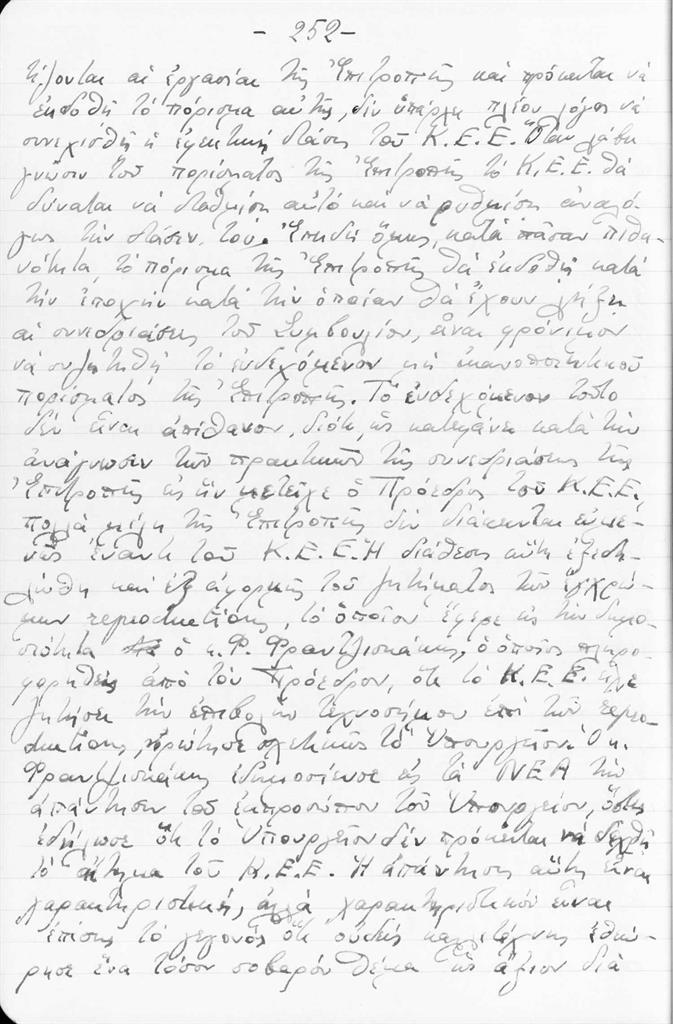 - 252 -
τίζονται αἱ ἐργασίαι τῆς Ἐπιτροπῆς καὶ πρόκειται νὰ
ἐκδοθῇ τὸ πόρισμα αὐτῆς, δὲν ὑπάρχει πλέον λόγος νὰ
συνεχισθῇ ἡ ἐφεκτικὴ στάσις τοῦ Κ.Ε.Ε. Ὅταν λάβῃ
γνῶσιν τοῦ πορίσματος τῆς Ἐπιτροπῆς τὸ Κ.Ε.Ε. θὰ
δύναται νὰ σταθμίσῃ αὐτὸ καὶ νὰ ρυθμίσῃ ἀναλό-
γως τὴν στάσιν του. Ἐπειδὴ ὅμως, κατὰ πᾶσαν πιθα-
νότητα, τὸ πόρισμα τῆς Ἐπιτροπῆς θὰ ἐκδοθῇ κατὰ
τὴν ἐποχὴν κατὰ τὴν ὁποίαν θὰ ἔχουν λήξει
αἱ συνεδριάσεις τοῦ Συμβουλίου, εἶναι φρόνιμον
νὰ συζητηθῇ τὸ ἐνδεχόμενον μὴ ἱκανοποιητικοῦ
πορίσματος τῆς Ἐπιτροπῆς. Τὸ ἐνδεχόμενον τοῦτο
δὲν εἶναι ἀπίθανον, διότι, ὡς κατεφάνη κατὰ τὴν
ἀνάγνωσιν τῶν πρακτικῶν τῆς συνεδριάσεως τῆς
Ἐπιτροπῆς εἰς ἣν μετεῖχε ὁ Πρόεδρος τοῦ Κ.Ε.Ε,
πολλὰ μέλη τῆς Ἐπιτροπῆς δὲν διάκεινται εὐμε-
νῶς ἔναντι τοῦ Κ.Ε.Ε. Ἡ διάθεσις αὕτη ἐξεδη-
λώθη καὶ ἐξ ἀφορμῆς τοῦ ζητήματος τῶν ἐγχρώ-
μων reproductions, τὸ ὁποῖον ἔφερε εἰς τὴν δημο-
σιότητα ὁ κ. Φ. Φραντζισκάκης, ὁ ὁποῖος πληρο-
φορηθεὶς ἀπὸ τὸν Πρόεδρον, ὅτι τὸ Κ.Ε.Ε. εἶχε
ζητήσει τὴν ἐπιβολὴν τεχνοσήμου ἐπὶ τῶν repro-
ductions, ἠρώτησε σχετικῶς τὸ Ὑπουργεῖον. Ὁ κ.
Φραντζισκάκης ἐδημοσίευσε εἰς τὰ ΝΕΑ τὴν
ἀπάντησιν τοῦ ἐκπροσώπου τοῦ Ὑπουργείου, ὅστις
ἐδήλωσε ὅτι τὸ Ὑπουργεῖον δὲν πρόκειται νὰ δεχθῇ
τὸ αἴτημα τοῦ Κ.Ε.Ε. Ἡ ἀπάντησις αὕτη εἶναι
χαρακτηριστική, ἀλλὰ χαρακτηριστικὸν εἶναι
ἐπίσης τὸ γεγονὸς ὅτι οὐδεὶς καλλιτέχνης ἐθεώ-
ρησε ἕνα τόσον σοβαρὸν θέμα ὡς ἄξιον διὰ